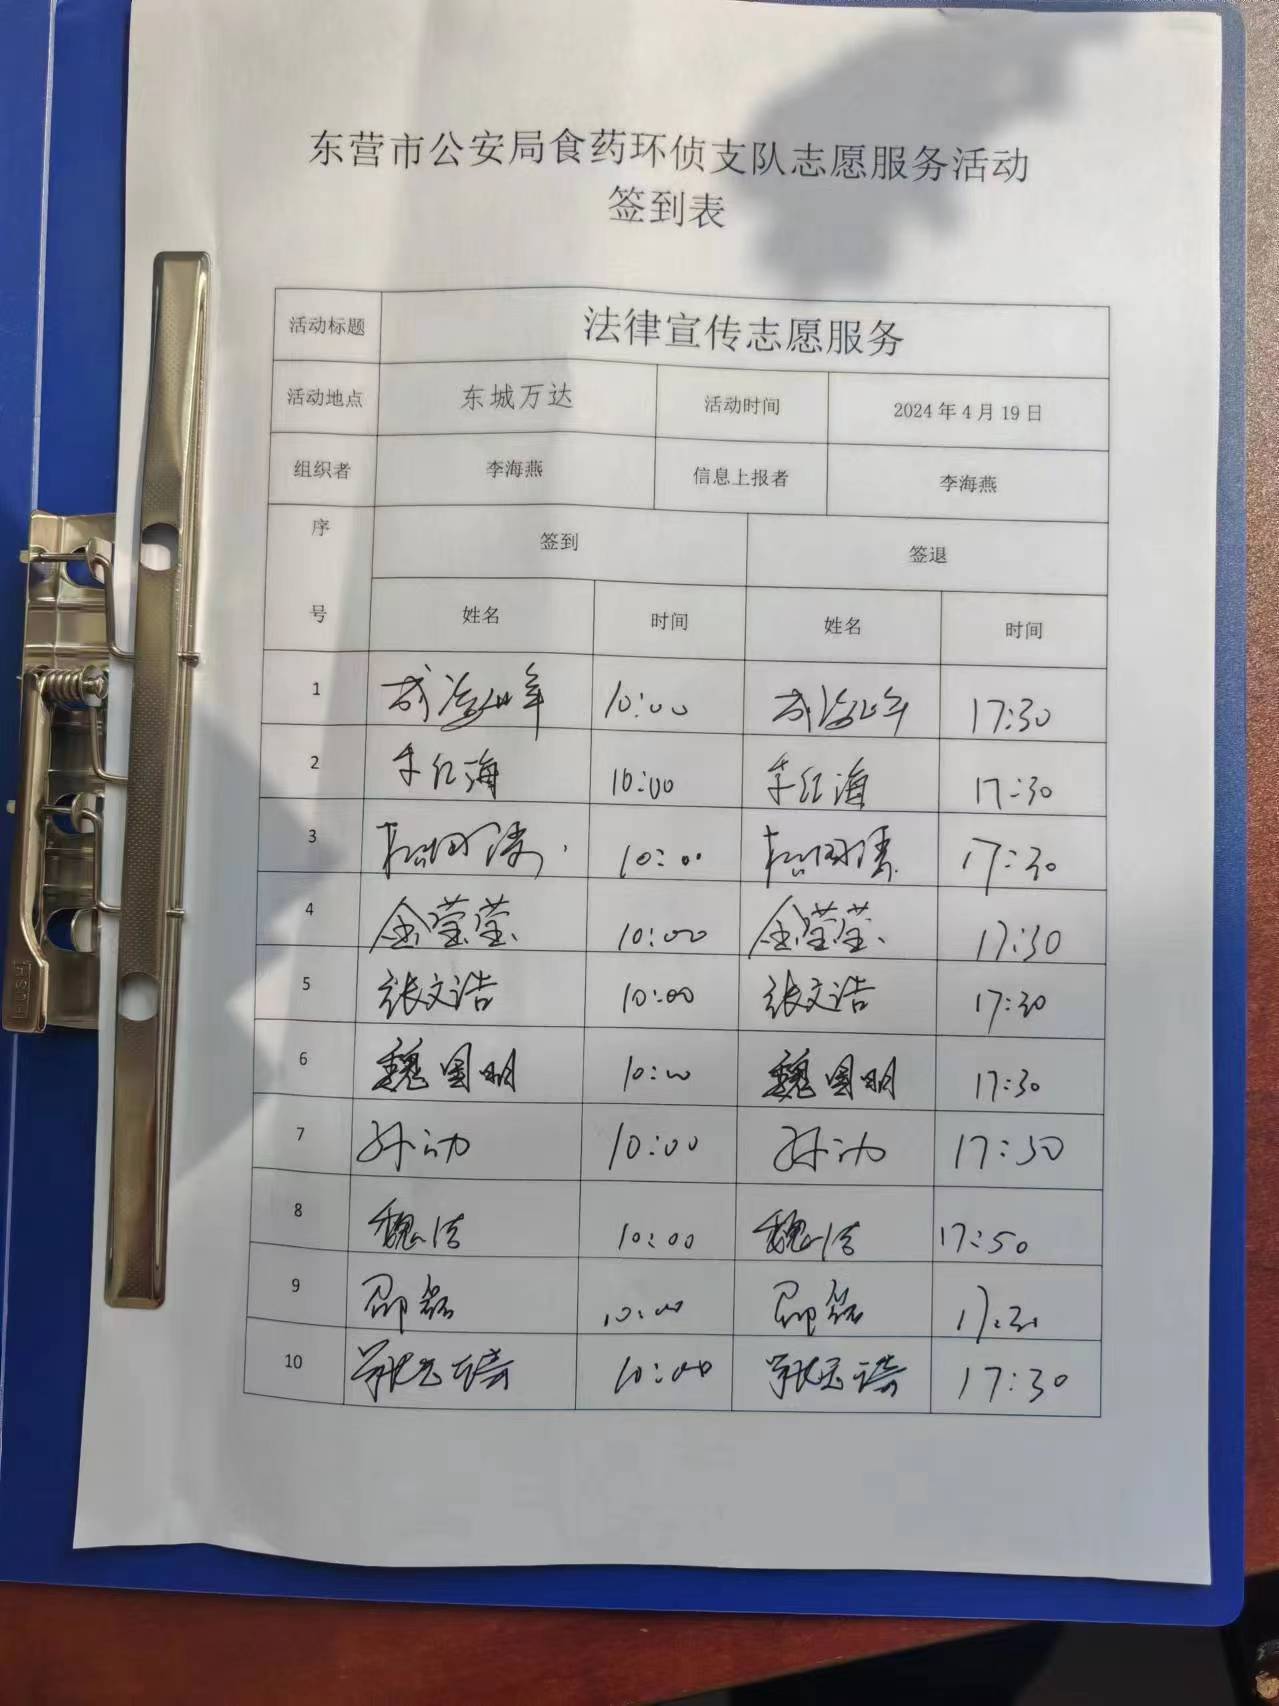 东营市公安局食药环侦支队志愿服务活动
签到表
活动标题 法律宣传志愿服务
活动地点 东城万达 活动时间 2024年4月19日
组织者 李海燕 信息上报者 李海燕
序号 签到 签退
姓名 时间 姓名 时间
1 10:00 17:30
2 李红海 10:00 李红海 17:30
3 10:00 17:30
4 金莹莹 10:00 金莹莹 17:30
5 张文浩 10:00 张文浩 17:30
6 魏国明 10:00 魏国明 17:30
7 孙动 10:00 孙动 17:30
8 魏洁 10:00 魏洁 17:50
9 邵磊 10:00 邵磊 17:30
10 10:00 17:30
HUSH